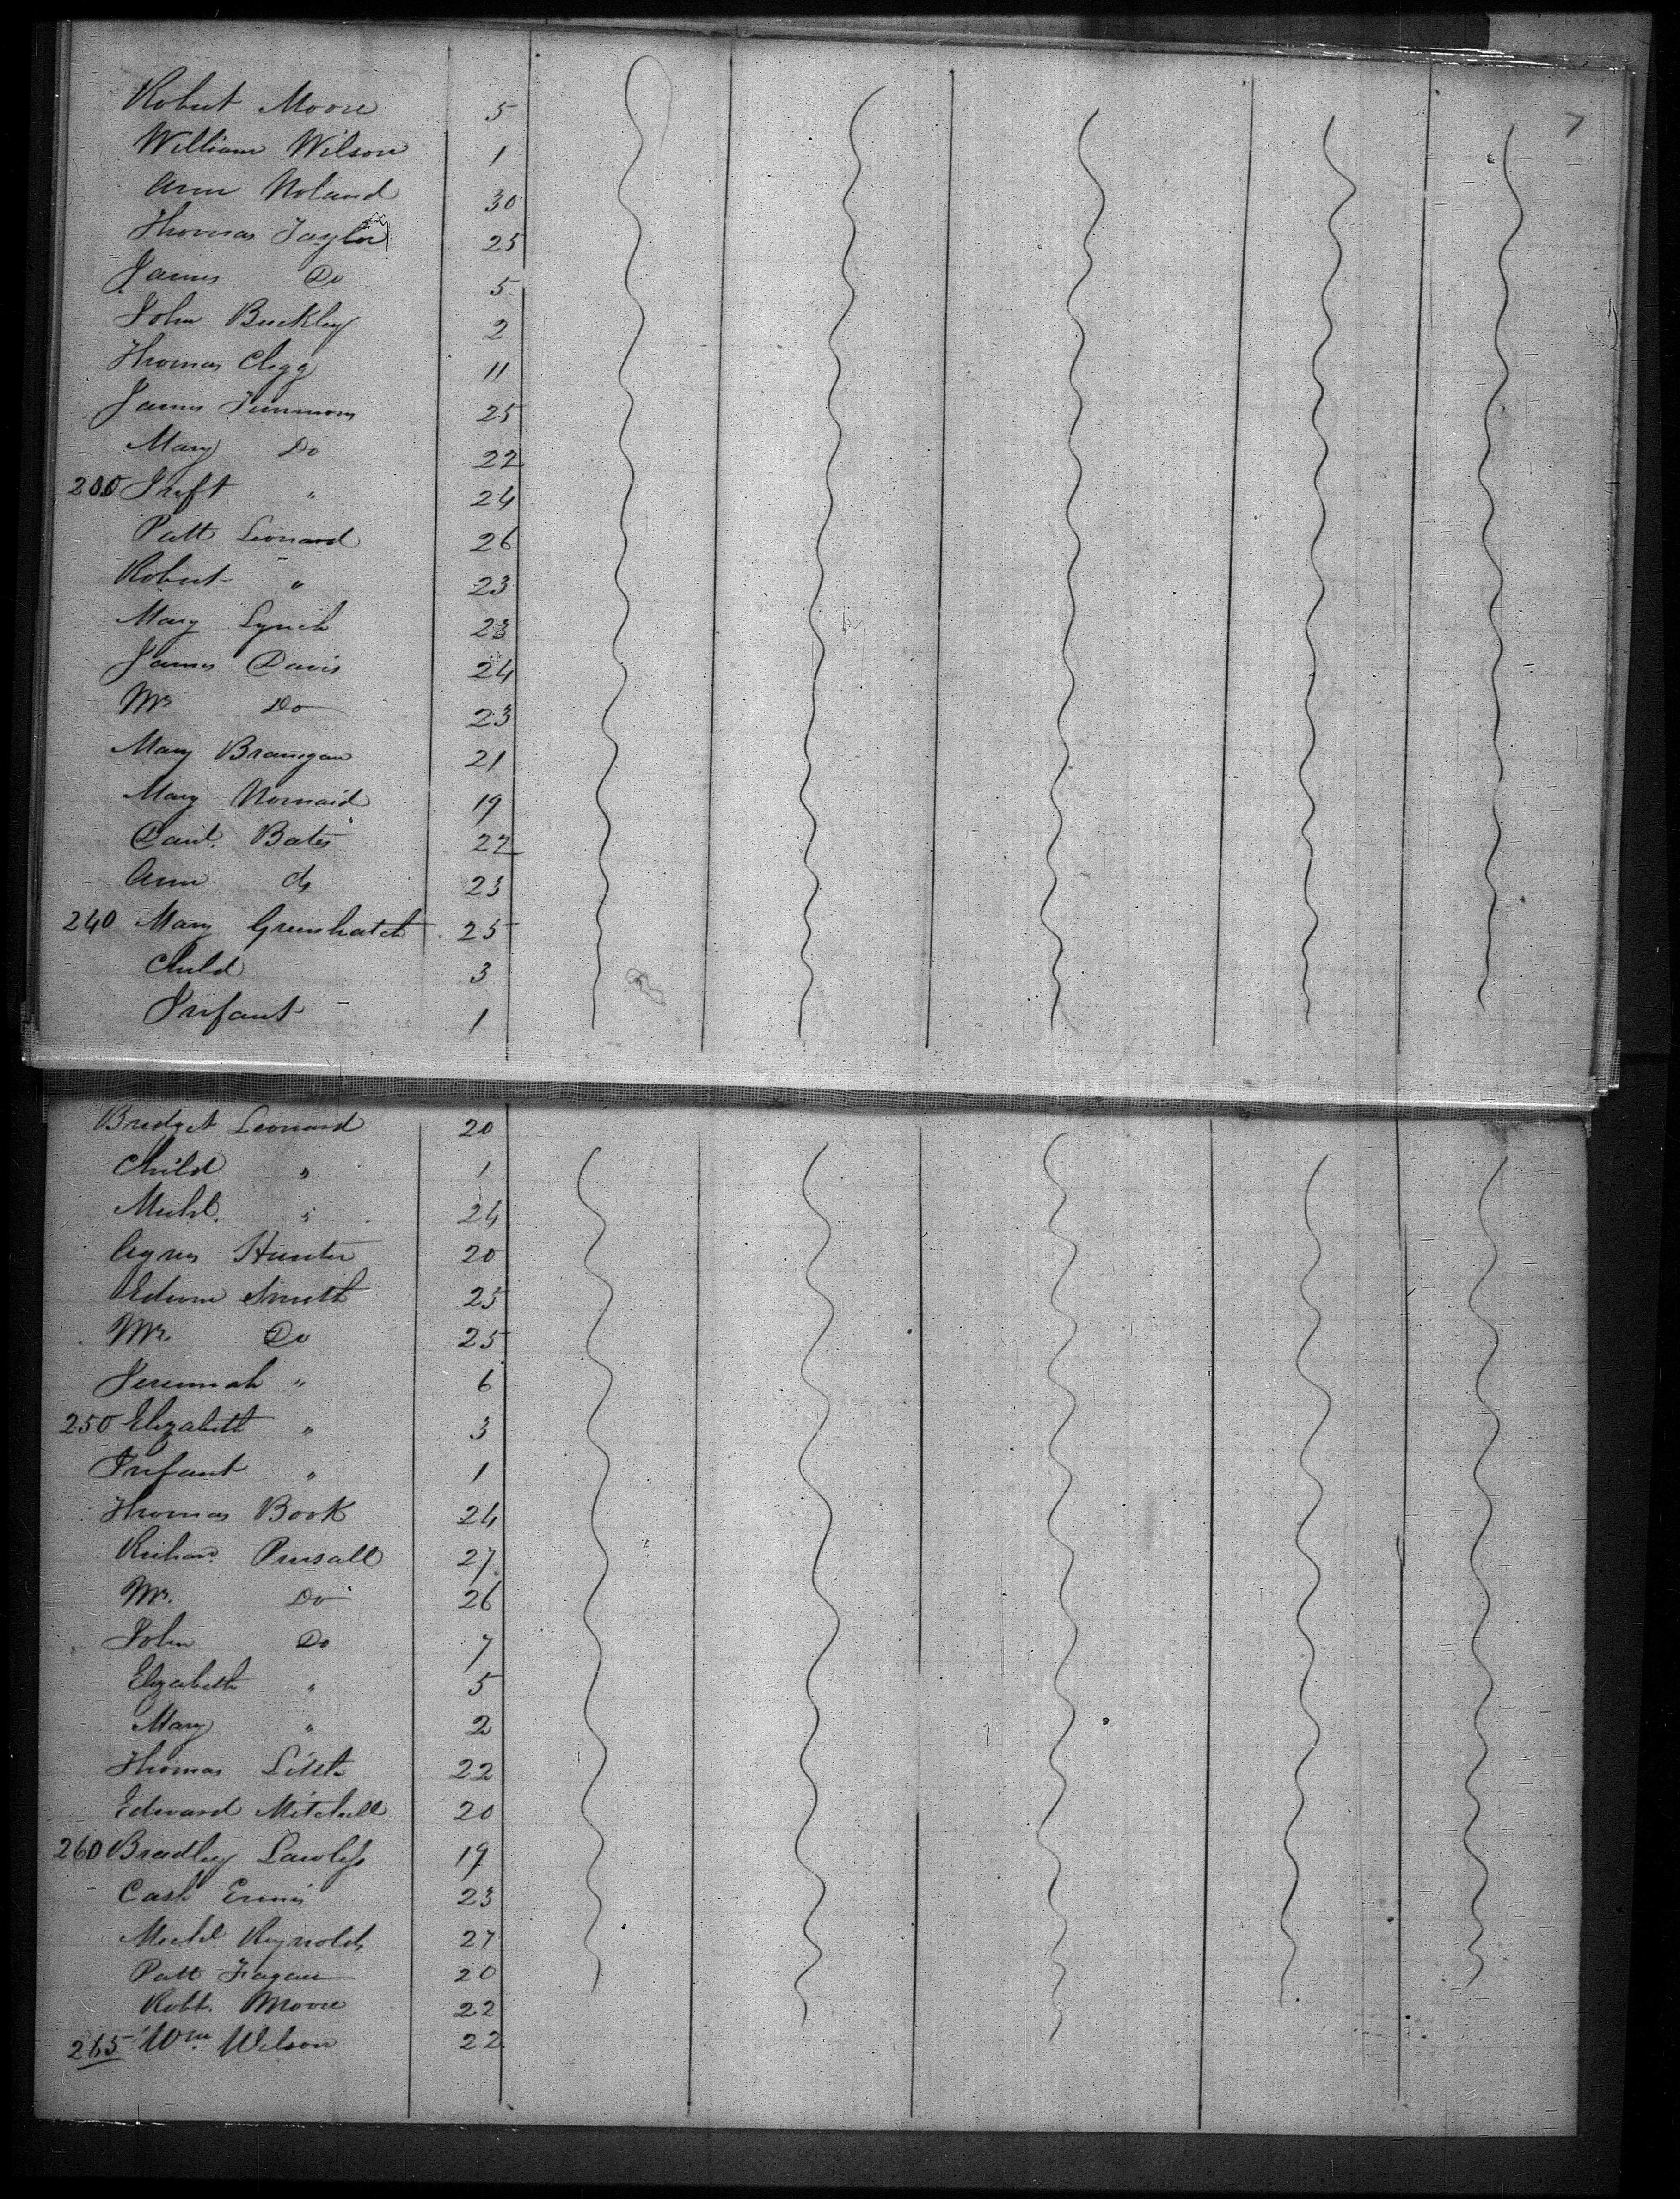 7
Robert Moore 5
William Wilson 1
Ann Noland 30
Thomas Taylor 25
James Do 5
John Buckley 2
Thomas Clegg 11
James Timmons 25
Mary Do 22
" 24
Patt Leonard 26
Robert " 23
Mary Lynch 23
James Davis 24
Mrs Do 23
Mary Branigan 21
Mary 19
Danl. Bates 22
Ann do 23
240 Mary Greenhatch 25
Child 3
Infant 1
Bridget Leonard 20
Child " 1
Michl. " 24
Agnes Hunter 20
Edwin Smith 25
Mrs. Do 25
Jeremiah " 6
250 Elizabeth " 3
Infant " 1
Thomas Book 24
Richard Pursall 27
Mrs. Do 26
John Do 7
Elizabeth " 5
Mary " 2
Thomas Little 22
Edward Mitchell 20
260 Bradley Lawless 19
Cash 23
Michl. Reynolds 27
Patt Fagan 20
Robt. Moore 22
265 Wm. Wilson 22